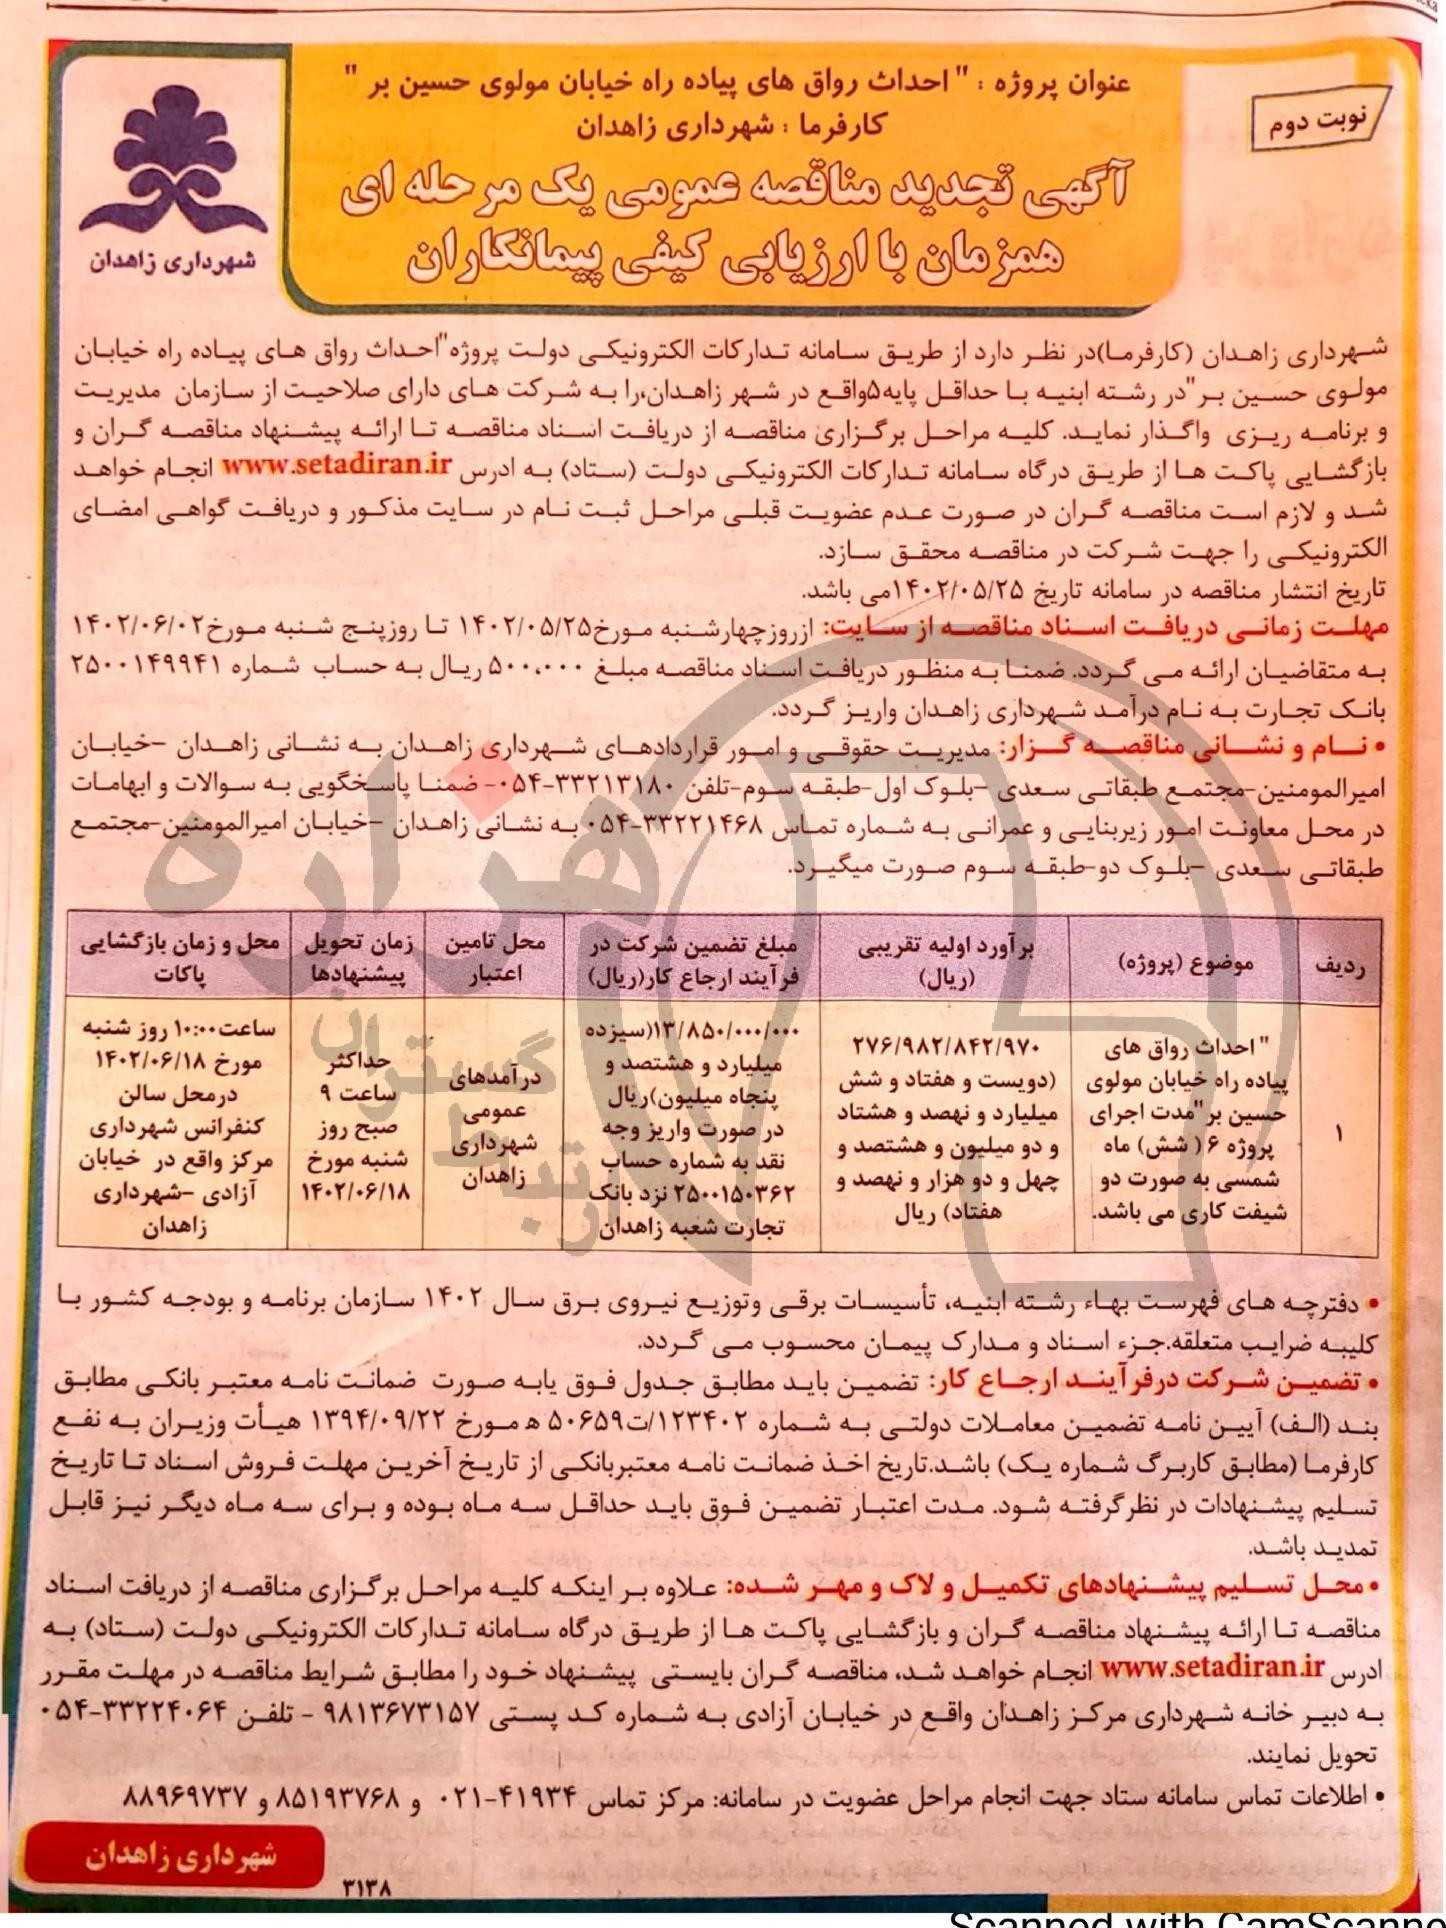 نوبت دوم
عنوان پروژه : " احداث رواق های پیاده راه خیابان مولوی حسین بر "
کارفرما : شهرداری زاهدان
آگهی تجدید مناقصه عمومی یک مرحله ای
همزمان با ارزیابی کیفی پیمانکاران
شهرداری زاهدان
شهرداری زاهدان (کارفرما)در نظر دارد از طریق سامانه تدارکات الکترونیکی دولت پروژه"احداث رواق های پیاده راه خیابان
مولوی حسین بر"در رشته ابنیه با حداقل پایه۵واقع در شهر زاهدان،را به شرکت های دارای صلاحیت از سازمان مدیریت
و برنامه ریزی واگذار نماید. کلیه مراحل برگزاری مناقصه از دریافت اسناد مناقصه تا ارائه پیشنهاد مناقصه گران و
بازگشایی پاکت ها از طریق درگاه سامانه تدارکات الکترونیکی دولت (ستاد) به ادرس www.setadiran.ir انجام خواهد
شد و لازم است مناقصه گران در صورت عدم عضویت قبلی مراحل ثبت نام در سایت مذکور و دریافت گواهی امضای
الکترونیکی را جهت شرکت در مناقصه محقق سازد.
تاریخ انتشار مناقصه در سامانه تاریخ ۱۴۰۲/۰۵/۲۵می باشد.
مهلت زمانی دریافت اسناد مناقصه از سایت: ازروزچهارشنبه مورخ۱۴۰۲/۰۵/۲۵ تا روزپنج شنبه مورخ۱۴۰۲/۰۶/۰۲
به متقاضیان ارائه می گردد. ضمنا به منظور دریافت اسناد مناقصه مبلغ ۵۰۰،۰۰۰ ریال به حساب شماره ۲۵۰۰۱۴۹۹۴۱
بانک تجارت به نام درآمد شهرداری زاهدان واریز گردد.
• نام و نشانی مناقصه گزار: مدیریت حقوقی و امور قراردادهای شهرداری زاهدان به نشانی زاهدان –خیابان
امیرالمومنین-مجتمع طبقاتی سعدی –بلوک اول-طبقه سوم-تلفن ۳۳۲۱۳۱۸۰-۰۵۴- ضمنا پاسخگویی به سوالات و ابهامات
در محل معاونت امور زیربنایی و عمرانی به شماره تماس ۳۳۲۲۱۴۶۸-۰۵۴ به نشانی زاهدان –خیابان امیرالمومنین-مجتمع
طبقاتی سعدی –بلوک دو-طبقه سوم صورت میگیرد.
ردیف
موضوع (پروژه)
برآورد اولیه تقریبی
(ریال)
مبلغ تضمین شرکت در
فرآیند ارجاع کار(ریال)
محل تامین
اعتبار
زمان تحویل
پیشنهادها
محل و زمان بازگشایی
پاکات
۱
" احداث رواق های
پیاده راه خیابان مولوی
حسین بر"مدت اجرای
پروژه ۶ ( شش) ماه
شمسی به صورت دو
شیفت کاری می باشد.
۲۷۶/۹۸۲/۸۴۲/۹۷۰
(دویست و هفتاد و شش
میلیارد و نهصد و هشتاد
و دو میلیون و هشتصد و
چهل و دو هزار و نهصد و
هفتاد) ریال
۱۳/۸۵۰/۰۰۰/۰۰۰(سیزده
میلیارد و هشتصد و
پنجاه میلیون)ریال
در صورت واریز وجه
نقد به شماره حساب
۲۵۰۰۱۵۰۳۶۲ نزد بانک
تجارت شعبه زاهدان
درآمدهای
عمومی
شهرداری
زاهدان
حداکثر
ساعت ۹
صبح روز
شنبه مورخ
۱۴۰۲/۰۶/۱۸
ساعت۱۰:۰۰ روز شنبه
مورخ ۱۴۰۲/۰۶/۱۸
درمحل سالن
کنفرانس شهرداری
مرکز واقع در خیابان
آزادی –شهرداری
زاهدان
• دفترچه های فهرست بهاء رشته ابنیه، تأسیسات برقی وتوزیع نیروی برق سال ۱۴۰۲ سازمان برنامه و بودجه کشور با
کلیبه ضرایب متعلقه.جزء اسناد و مدارک پیمان محسوب می گردد.
• تضمین شرکت درفرآیند ارجاع کار: تضمین باید مطابق جدول فوق یابه صورت ضمانت نامه معتبر بانکی مطابق
بند (الف) آیین نامه تضمین معاملات دولتی به شماره ۱۲۳۴۰۲/ت۵۰۶۵۹ ه مورخ ۱۳۹۴/۰۹/۲۲ هیأت وزیران به نفع
کارفرما (مطابق کاربرگ شماره یک) باشد.تاریخ اخذ ضمانت نامه معتبربانکی از تاریخ آخرین مهلت فروش اسناد تا تاریخ
تسلیم پیشنهادات در نظرگرفته شود. مدت اعتبار تضمین فوق باید حداقل سه ماه بوده و برای سه ماه دیگر نیز قابل
تمدید باشد.
• محل تسلیم پیشنهادهای تکمیل و لاک و مهر شده: علاوه بر اینکه کلیه مراحل برگزاری مناقصه از دریافت اسناد
مناقصه تا ارائه پیشنهاد مناقصه گران و بازگشایی پاکت ها از طریق درگاه سامانه تدارکات الکترونیکی دولت (ستاد) به
ادرس www.setadiran.ir انجام خواهد شد، مناقصه گران بایستی پیشنهاد خود را مطابق شرایط مناقصه در مهلت مقرر
به دبیر خانه شهرداری مرکز زاهدان واقع در خیابان آزادی به شماره کد پستی ۹۸۱۳۶۷۳۱۵۷ - تلفن ۳۳۲۲۴۰۶۴-۰۵۴
تحویل نمایند.
• اطلاعات تماس سامانه ستاد جهت انجام مراحل عضویت در سامانه: مرکز تماس ۴۱۹۳۴-۰۲۱ و ۸۵۱۹۳۷۶۸ و ۸۸۹۶۹۷۳۷
شهرداری زاهدان
۳۱۳۸
هزاره
ارتباط
گستران
Scanned with CamScanne